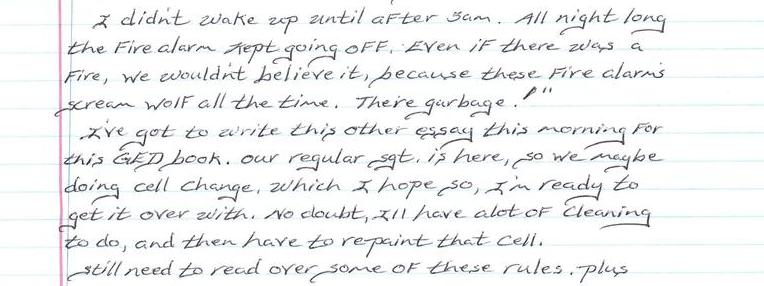 I didn't wake up until after 5am. All night long
the Fire alarm kept going off. Even if there was a
Fire, we wouldn't believe it, because these Fire alarm's
scream wolf all the time. There garbage!"
I've got to write this other essay this morning for
this GED book. our regular sgt. is here, so we maybe
doing cell change, which I hope so, I'm ready to
get it over with. No doubt, I'll have alot of cleaning
to do, and then have to re-paint that cell.
still need to read over some of these rules. plus